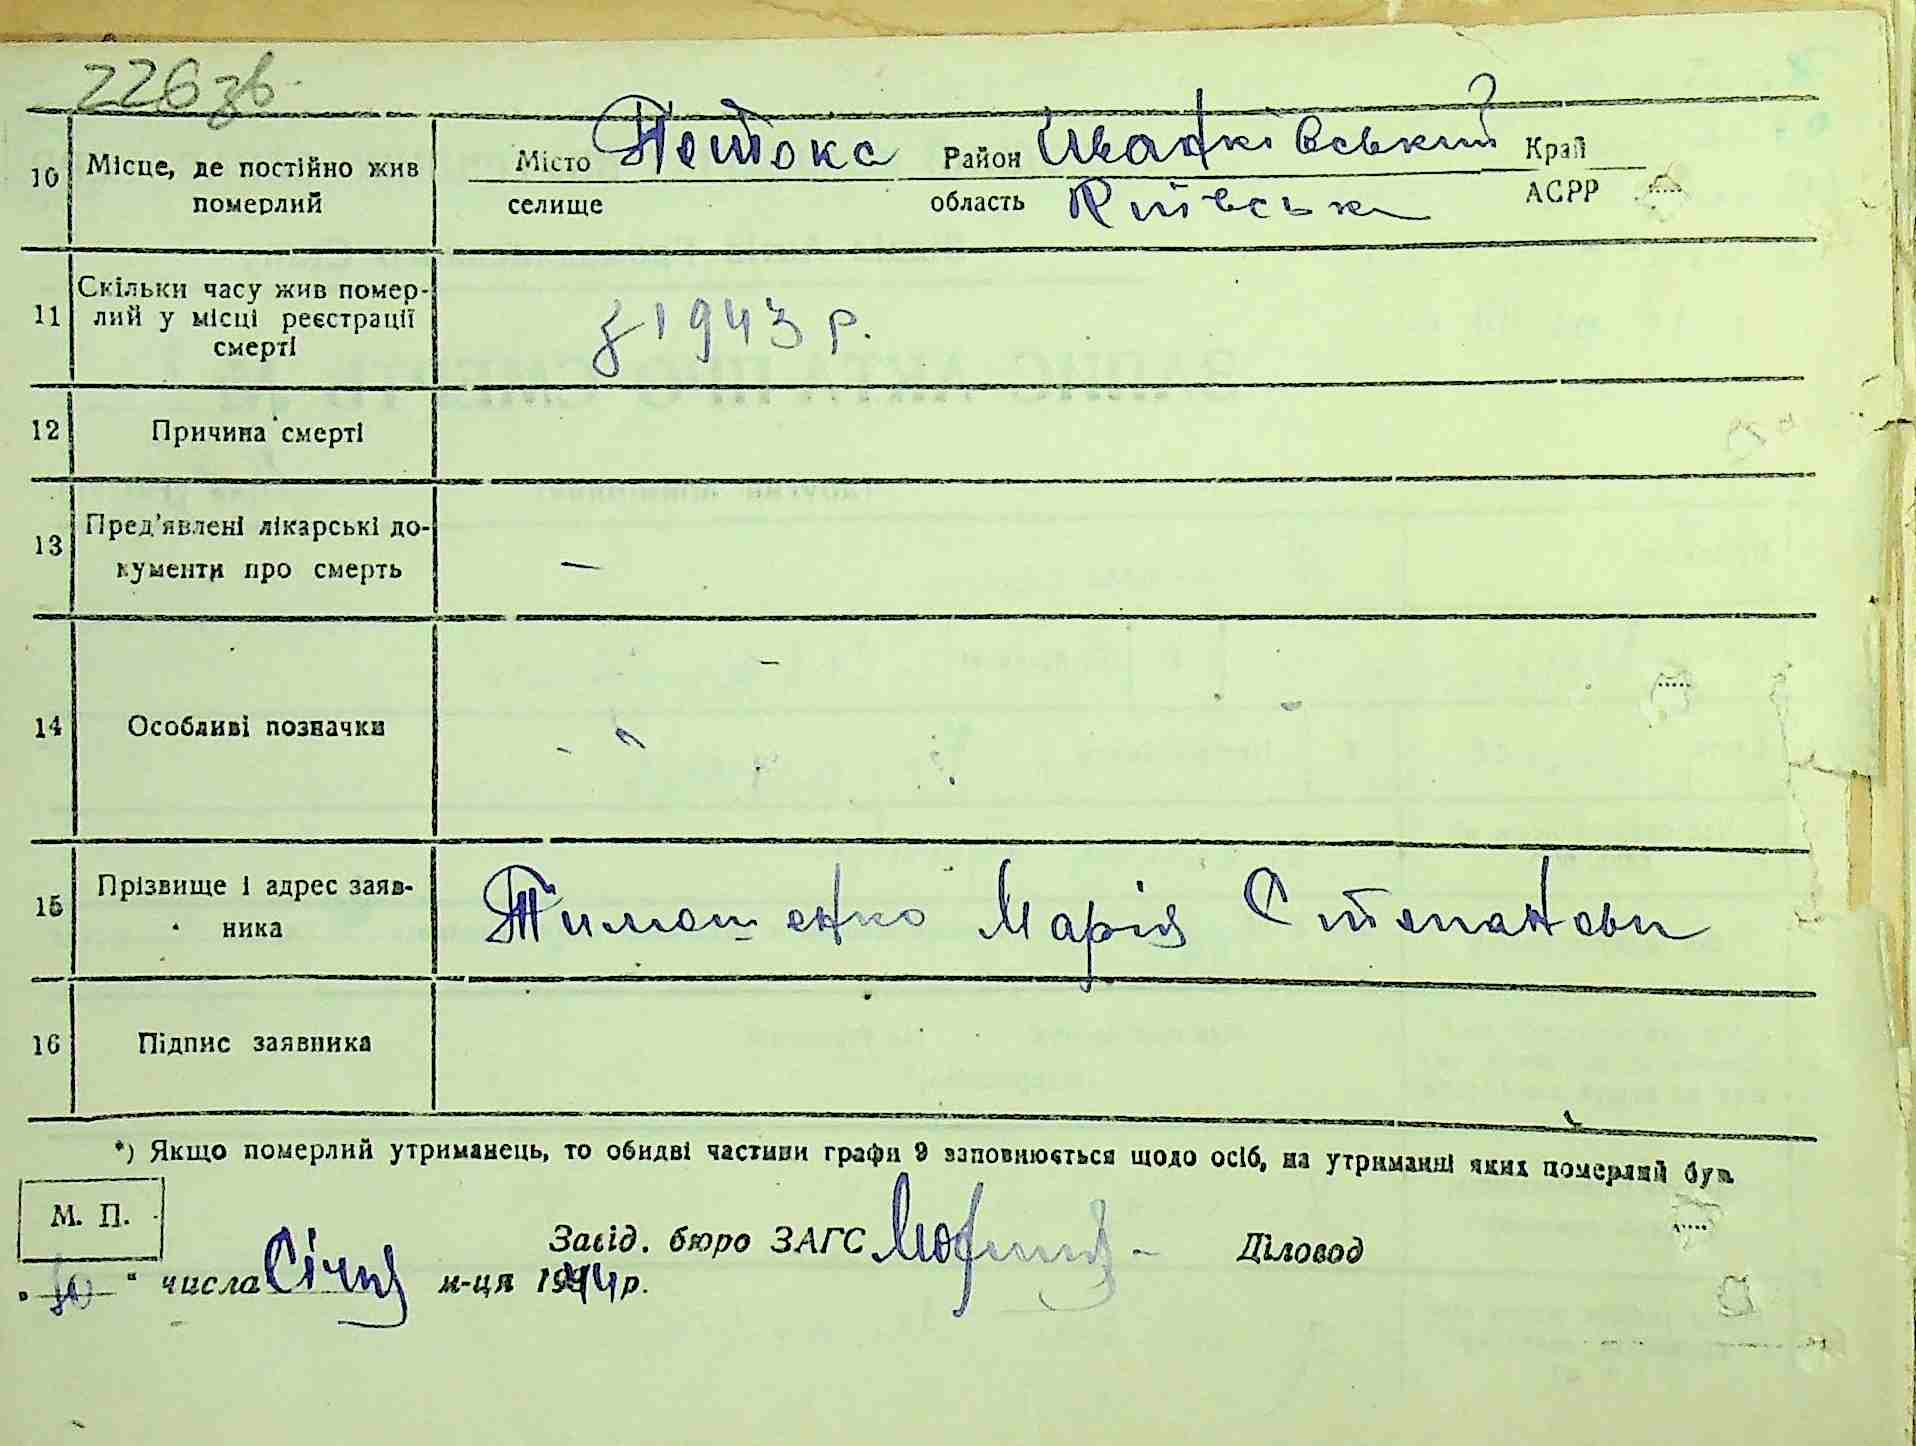 226 зв.
10 Місце, де постійно жив померлий
Місто Район Іванківський Край
селище область Київська АСРР
11 Скільки часу жив помер-
лий у місці реєстрації
смерті
з 1943 р.
12 Причина смерті
13 Пред'явлені лікарські до-
кументи про смерть
—
14 Особливі позначки
15 Прізвище і адрес заяв-
ника
Тимошенко Марія Степанови
16 Підпис заявника
*) Якщо померлий утриманець, то обидві частини графи 9 заповнюються щодо осіб, на утриманні яких померлий був.
М. П.
Завід. бюро ЗАГС Діловод
" 30 " числа Січня м-ця 1944 р.